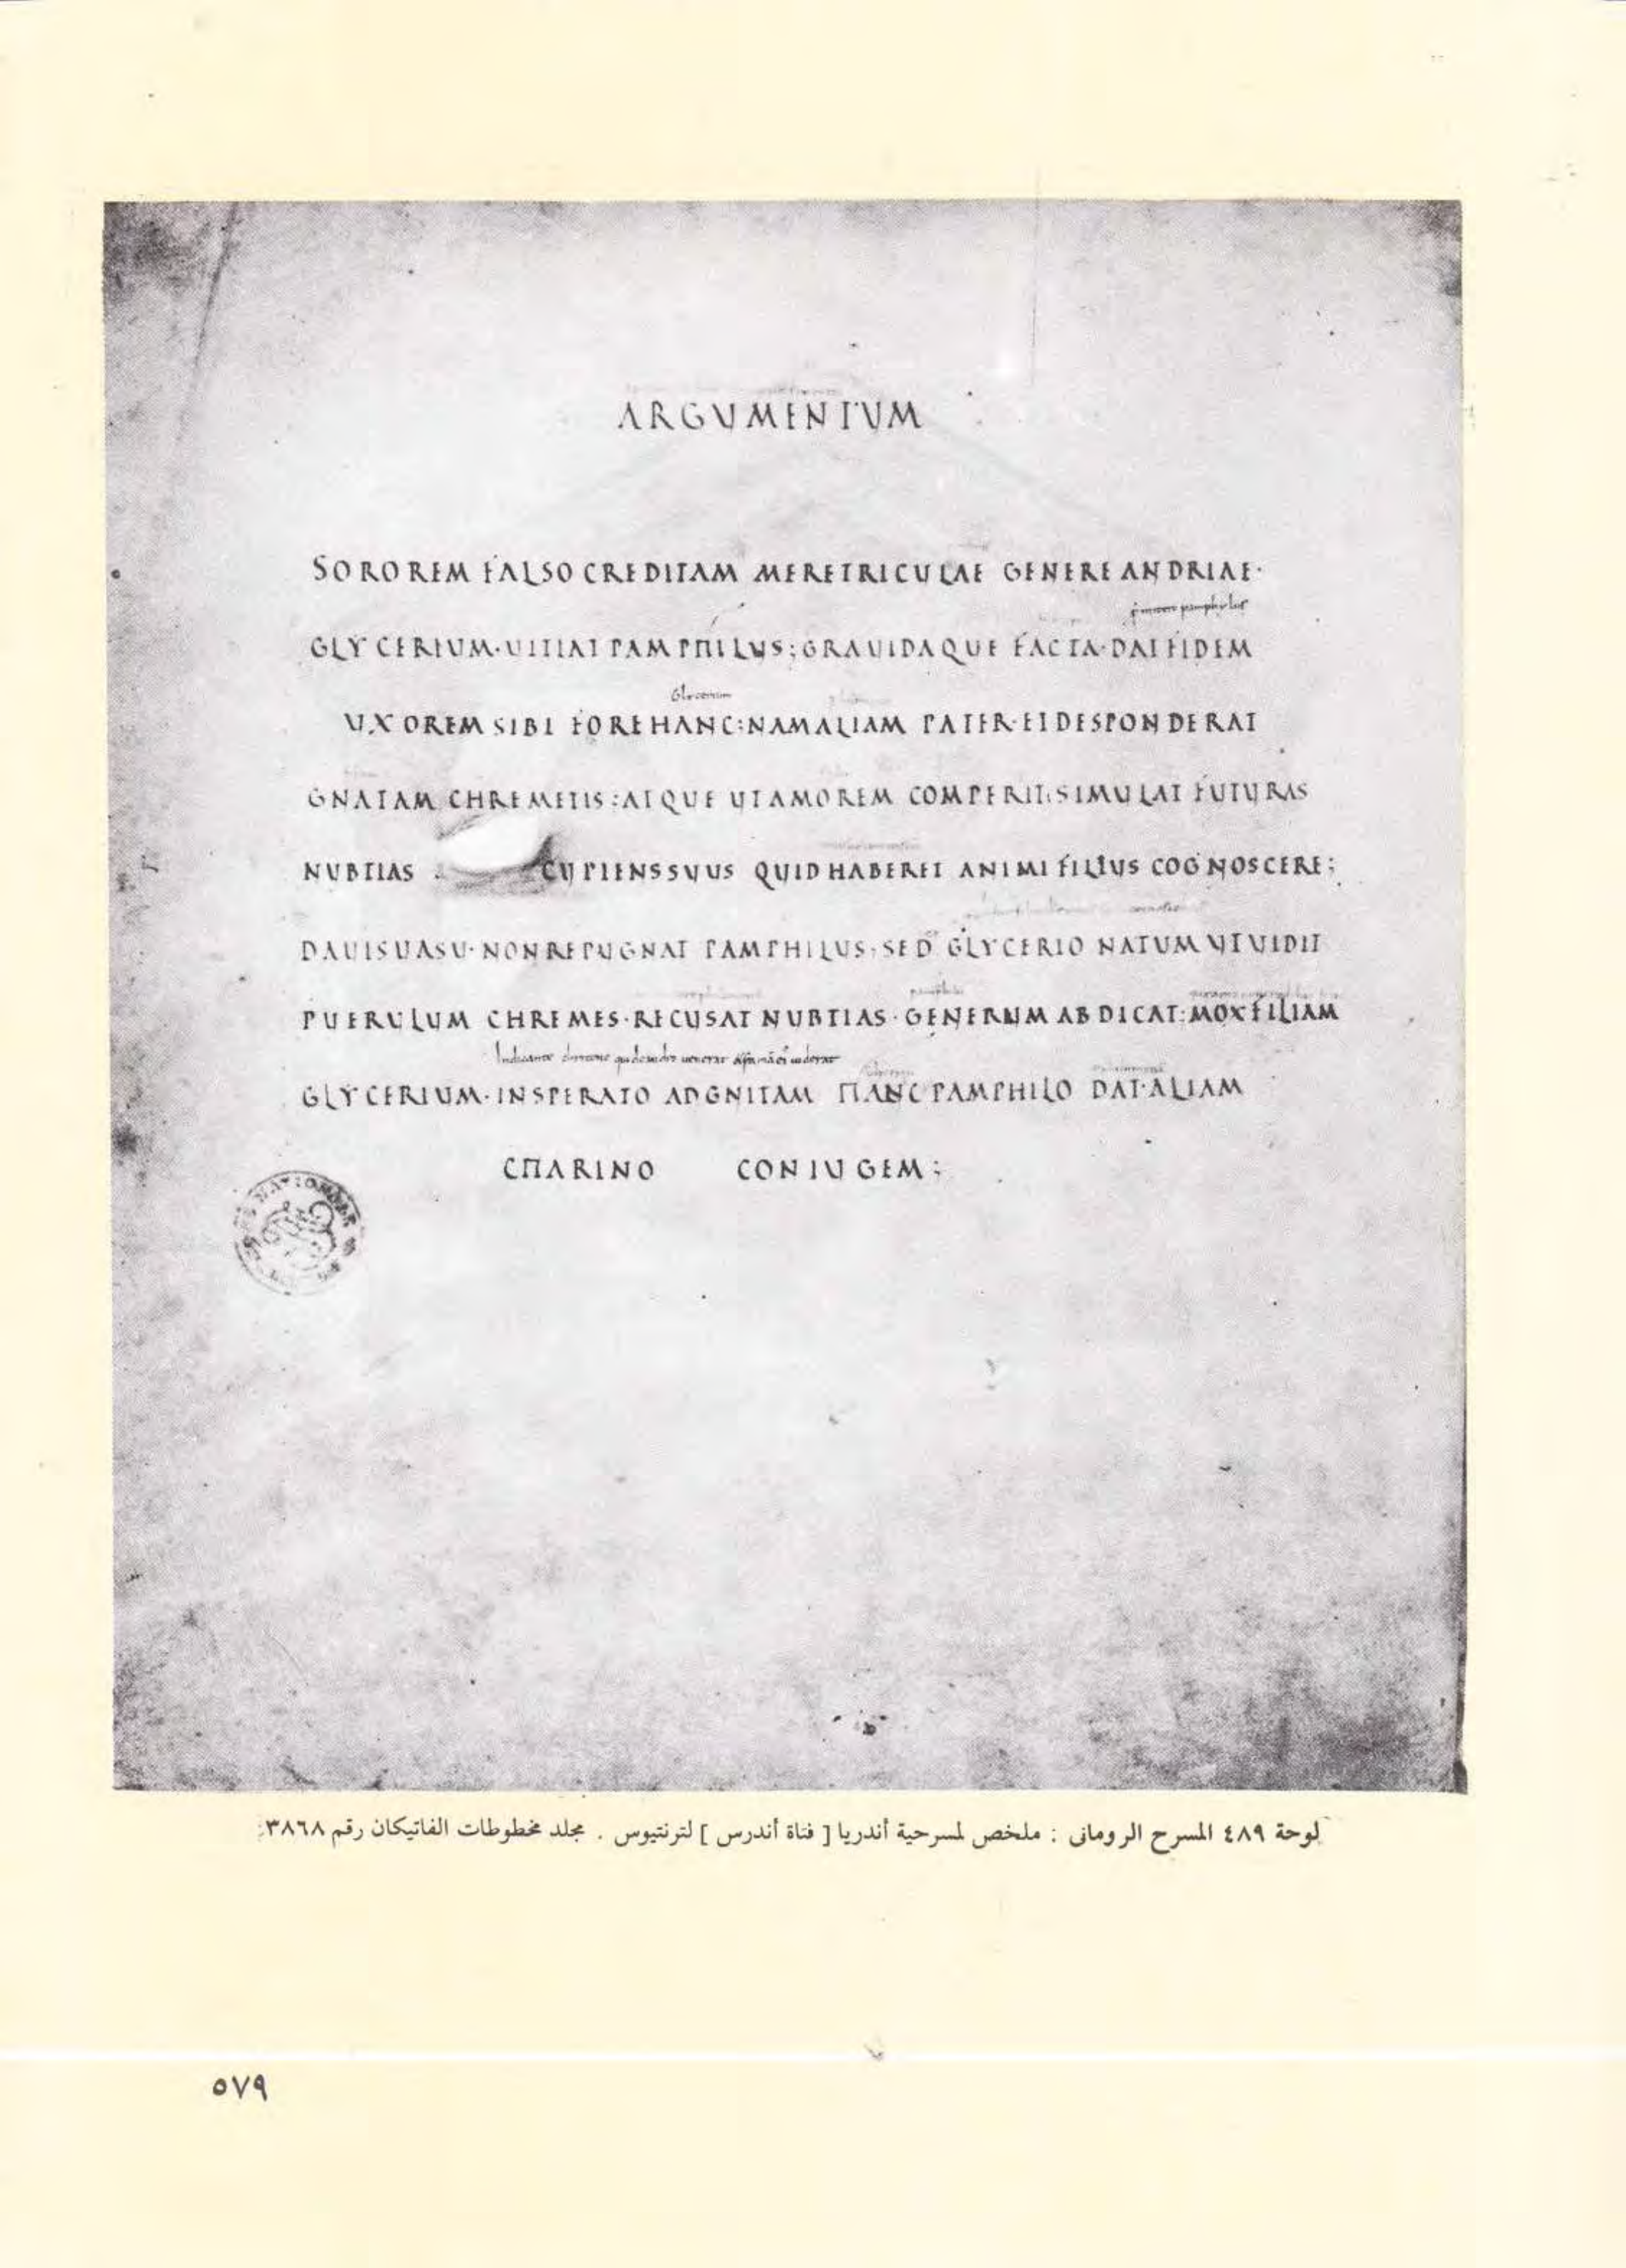 ARGVMENTVM
SOROREM FALSO CREDITAM MERETRICULAE GENERE ANDRIAE·
GLYCERIUM·UITIAT PAMPHILUS;GRAUIDAQUE FACTA·DAT FIDEM
Glycerium
UXOREM SIBI FORE HANC:NAM ALIAM PATER·EI DESPONDERAT
GNATAM CHREMETIS:ATQUE UT AMOREM COMPERIT;SIMULAT FUTURAS
NUBTIAS CUPIENS SUUS QUID HABERET ANIMI FILIUS COGNOSCERE;
DAUI SUASU·NON REPUGNAT PAMPHILUS·SED GLYCERIO NATUM UT UIDIT
PUERULUM CHREMES·RECUSAT NUBTIAS·GENERUM ABDICAT:MOX FILIAM
GLYCERIUM·INSPERATO ADGNITAM HANC PAMPHILO DAT·ALIAM
CHARINO CONIUGEM;
لوحة ٤٨٩ المسرح الرومانى : ملخص لمسرحية أندريا [ فتاة أندرس ] لترنتيوس . مجلد مخطوطات الفاتيكان رقم ٣٨٦٨.
٥٧٩